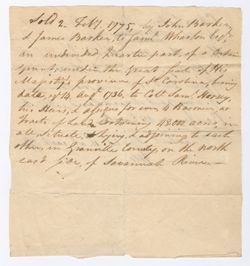 Sold 2. Feb.y 1775, by John Barker
& James Barker, to Sam.l Wharton Esq.r
an undivided part of a certain
Grant, under the Great Seal of His
Majesty's province of S.o Carolina, bearing
date y.e 14 Aug.t 1736. to Coll Sam.l Horsey,
his Heirs & assigns for ever 4 Baronies, or
Tracts of Land containing 48000 acres, in
all, situate, & lying, & adjoining to each
other, in Granville County, on the north
east side, of Savannah River